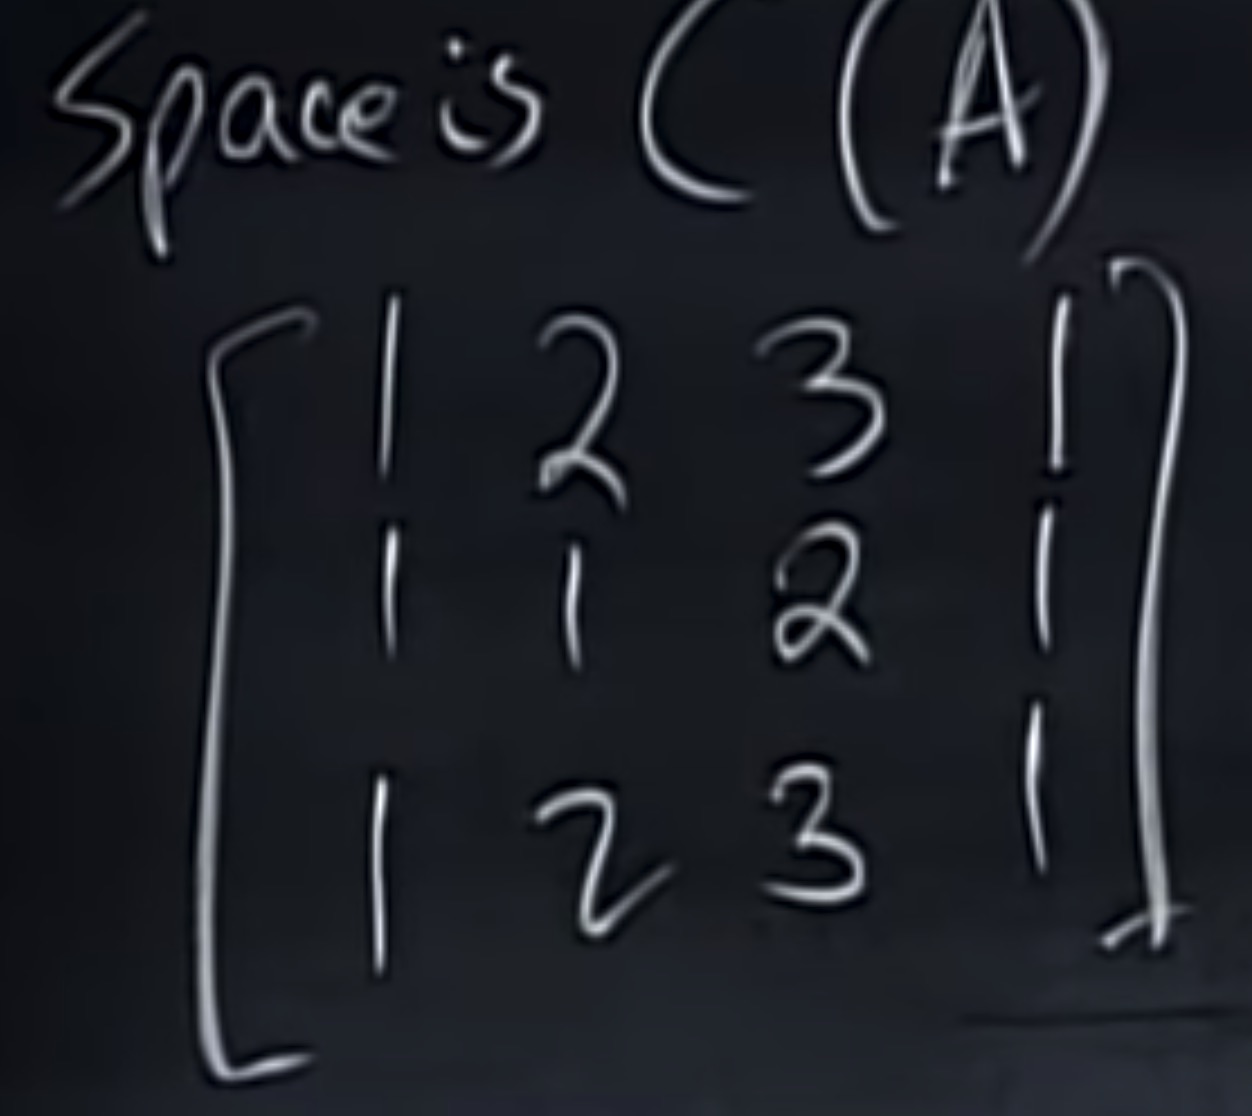 Space is C(A)
1 2 3 1
1 1 2 1
1 2 3 1